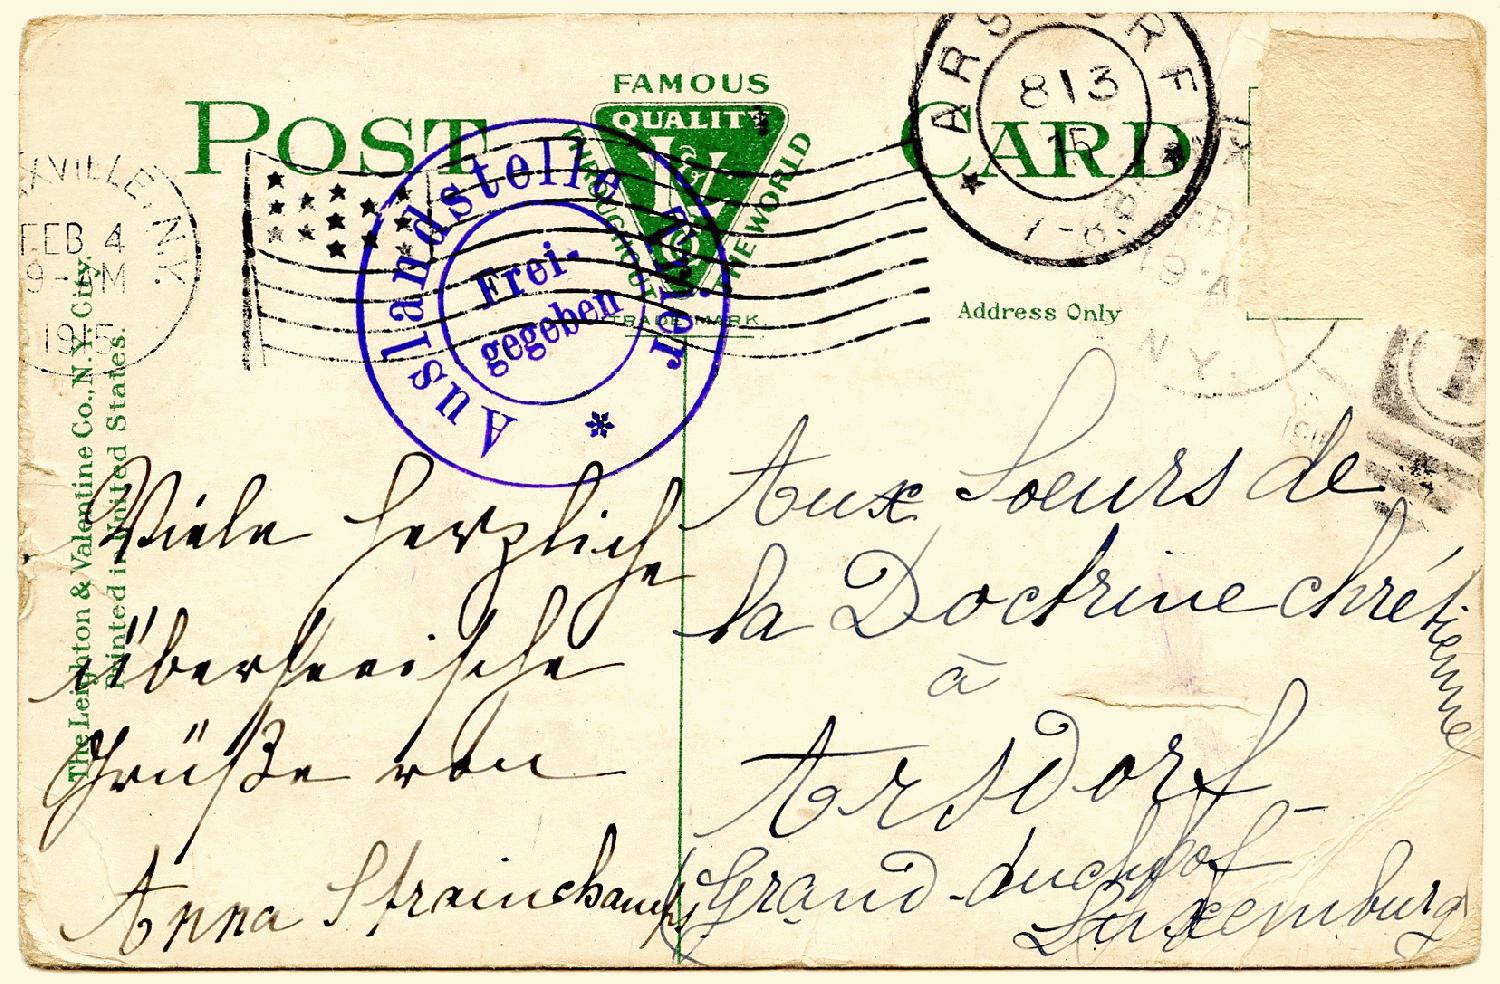 POST CARD
FAMOUS
QUALITY
V & L Co
THROUGHOUT THE WORLD
TRADE MARK.
Address Only
The Leighton & Valentine Co., N.Y. City.
Printed in United States.
N.Y.
FEB 4
1915
Auslandstelle Trier
Frei-
gegeben
ARSDORF
813
15
7-8
N Y.
Viele herzliche
überseeische
Grüße von
Anna Strainchamps
Aux Soeurs de
la Doctrine chrétienne
à
Arsdorf
Grand-duché of
Luxemburg